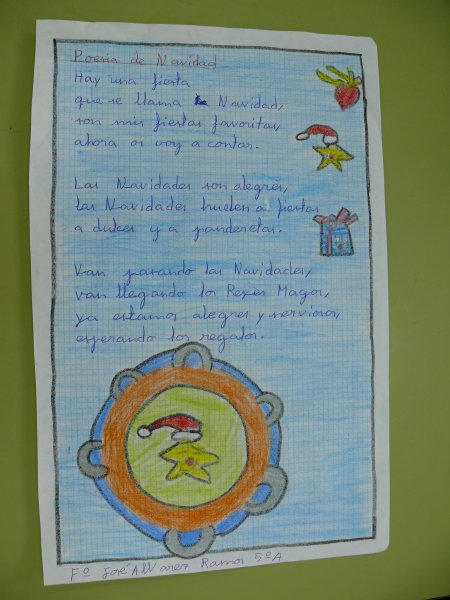 Poesia de Navidad
Hay una fiesta
que se llama Navidad,
son mis fiestas favoritas,
ahora os voy a contar.
Las Navidades son alegres,
las Navidades huelen a fiestas
a dulces y a panderetas.
Van pasando las Navidades,
van llegando los Reyes Magos,
ya estamos alegres y nerviosos,
esperando los regalos.
Fº José Alvarez Ramos 5ºA